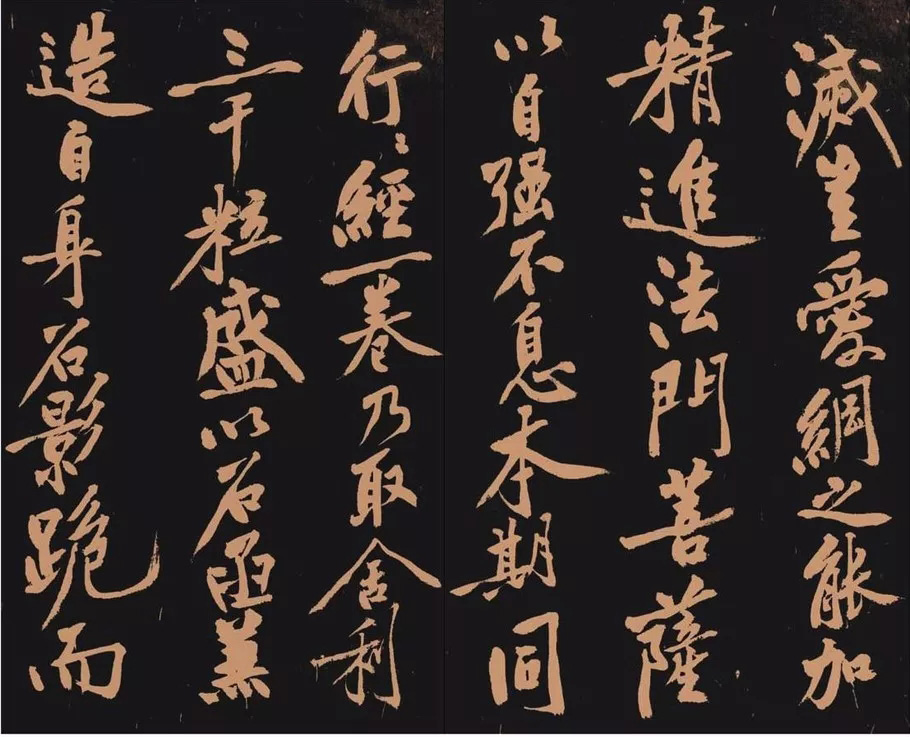 滅豈愛網之能加
精進法門菩薩
以自强不息本期同
行〻經一卷乃取舍利
三千粒盛以石函兼
造自身石影跪而